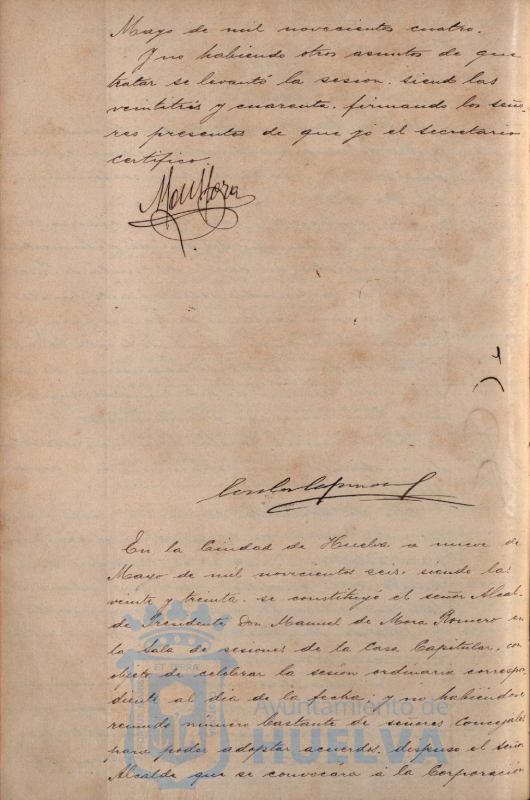 Mayo de mil novecientos cuatro.
Y no habiendo otros asuntos de que
tratar se levantó la sesion, siendo las
veintitrés y cuarenta, firmando los seño-
res presentes de que yo el secretario
certifico.
En la Ciudad de Huelva a nueve de
Mayo de mil novecientos seis, siendo las
veinte y treinta, se constituyó el señor Alcal-
de Presidente Don Manuel de Mora Romero en
la sala de sesiones de la Casa Capitular, con
objeto de celebrar la sesión ordinaria correspon
diente al dia de la fecha; y no habiéndose
reunido número bastante de señores Concejales
para poder adoptar acuerdos, dispuso el señor
Alcalde que se convocára á la Corporación
ET TERRA
Ayuntamiento de
HUELVA